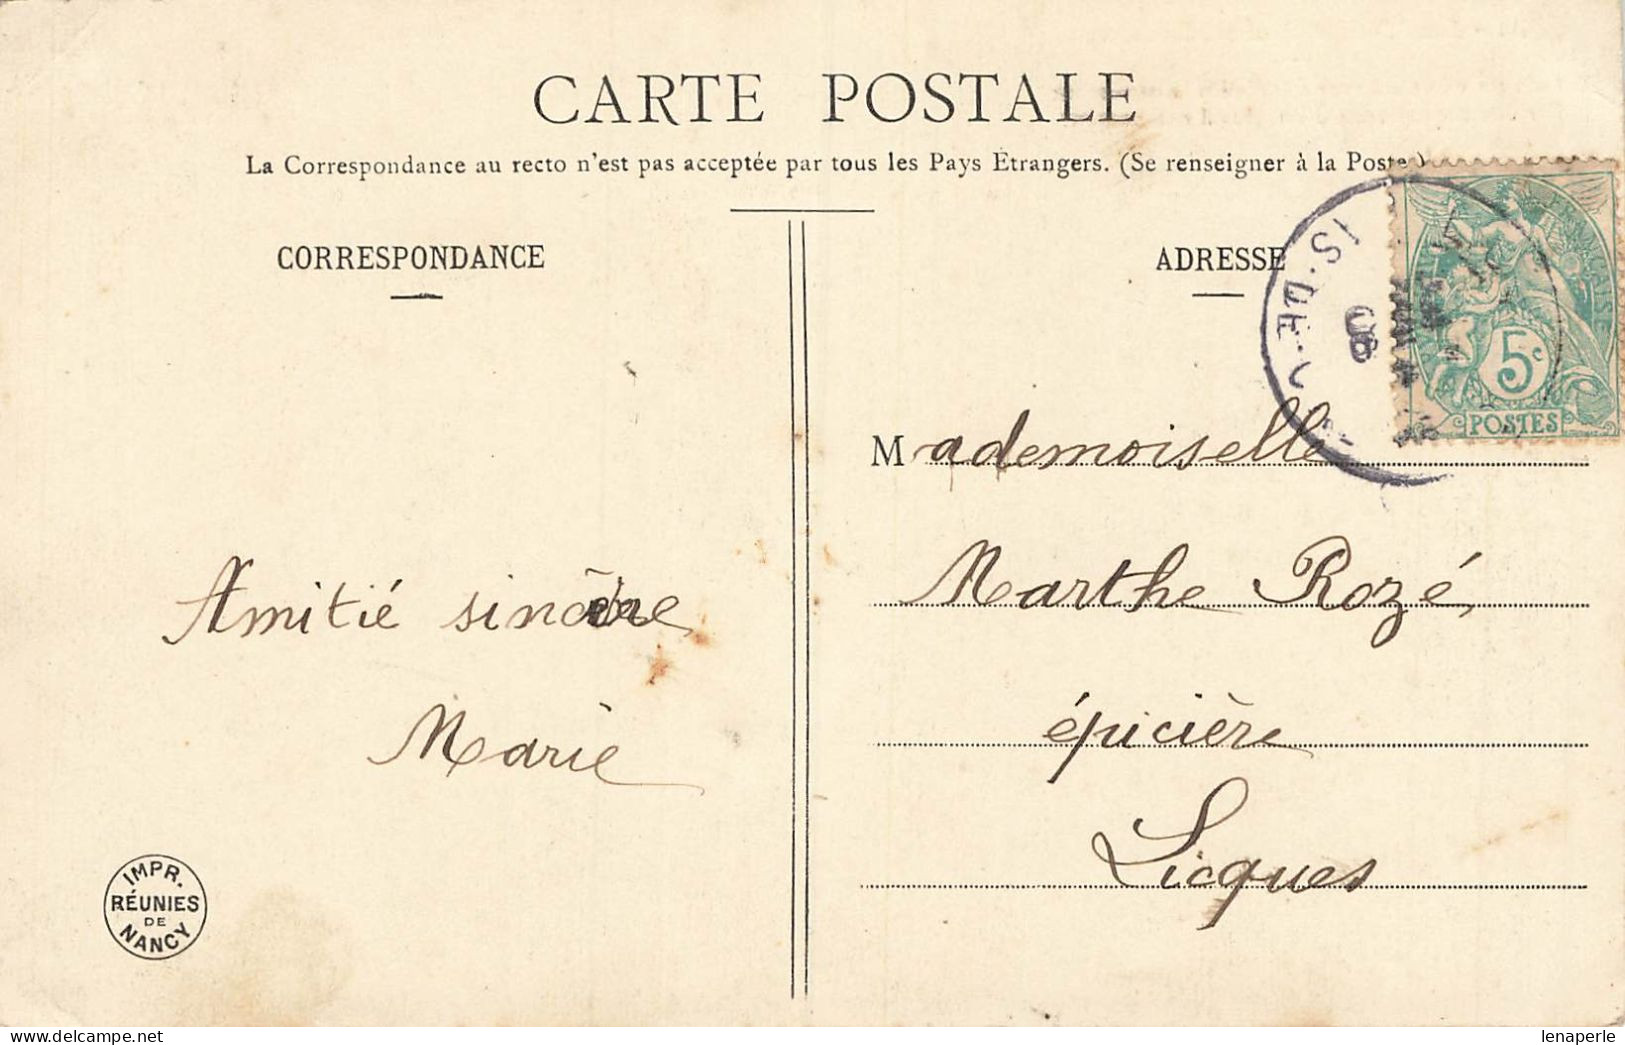 CARTE POSTALE
La Correspondance au recto n'est pas acceptée par tous les Pays Etrangers. (Se renseigner à la Poste.)
CORRESPONDANCE
ADRESSE
IS-DE-C
08
5c
POSTES
Mademoiselle
Marthe Rozé
épicière
Licques
Amitié sincère
Marie
IMPR.
RÉUNIES
DE
NANCY
lenaperle